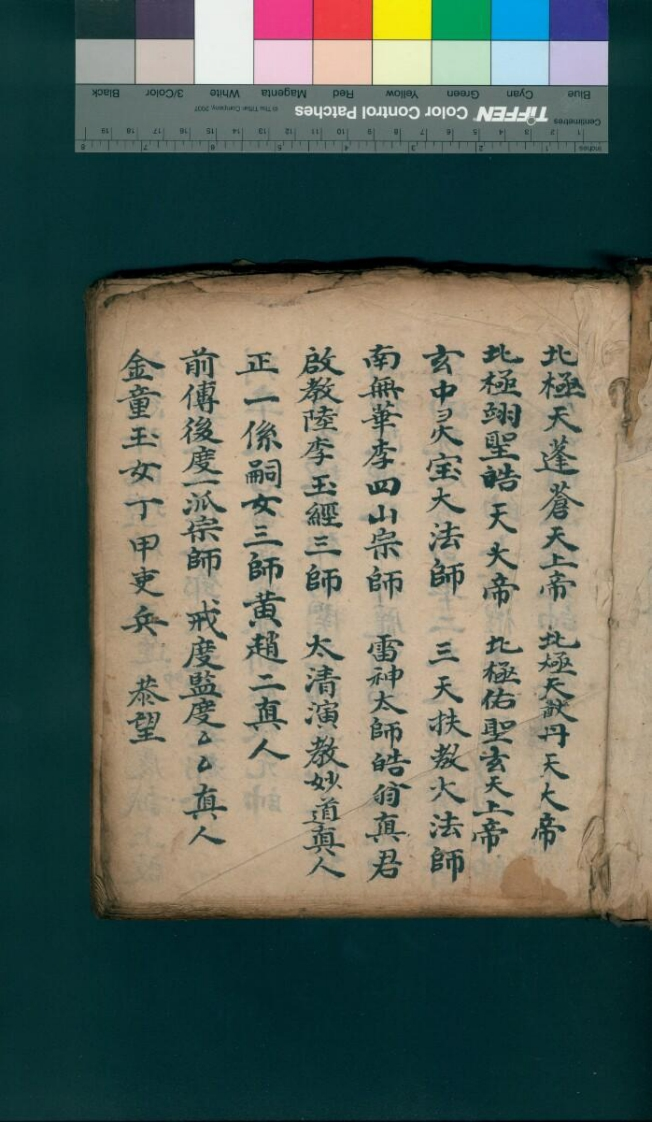 北極天蓬蒼天上帝 北極天猷丹天大帝
北極翊聖皓天大帝 北極佑聖玄天上帝
玄中灵宝大法師 三天扶教大法師
南無華李四山宗師 雷神太師皓翁真君
啟教陸李玉經三師 太清演教妙道真人
正一係嗣女三師黃趙二真人
前傳後度一派宗師 戒度監度乙乙真人
金童玉女丁甲吏兵 恭望
Blue Cyan Green Yellow Red Magenta White 3/Color Black
Centimetres TIFFEN Color Control Patches © The Tiffen Company, 2007
1 2 3 4 5 6 7 8 9 10 11 12 13 14 15 16 17 18 19
Inches 1 2 3 4 5 6 7 8